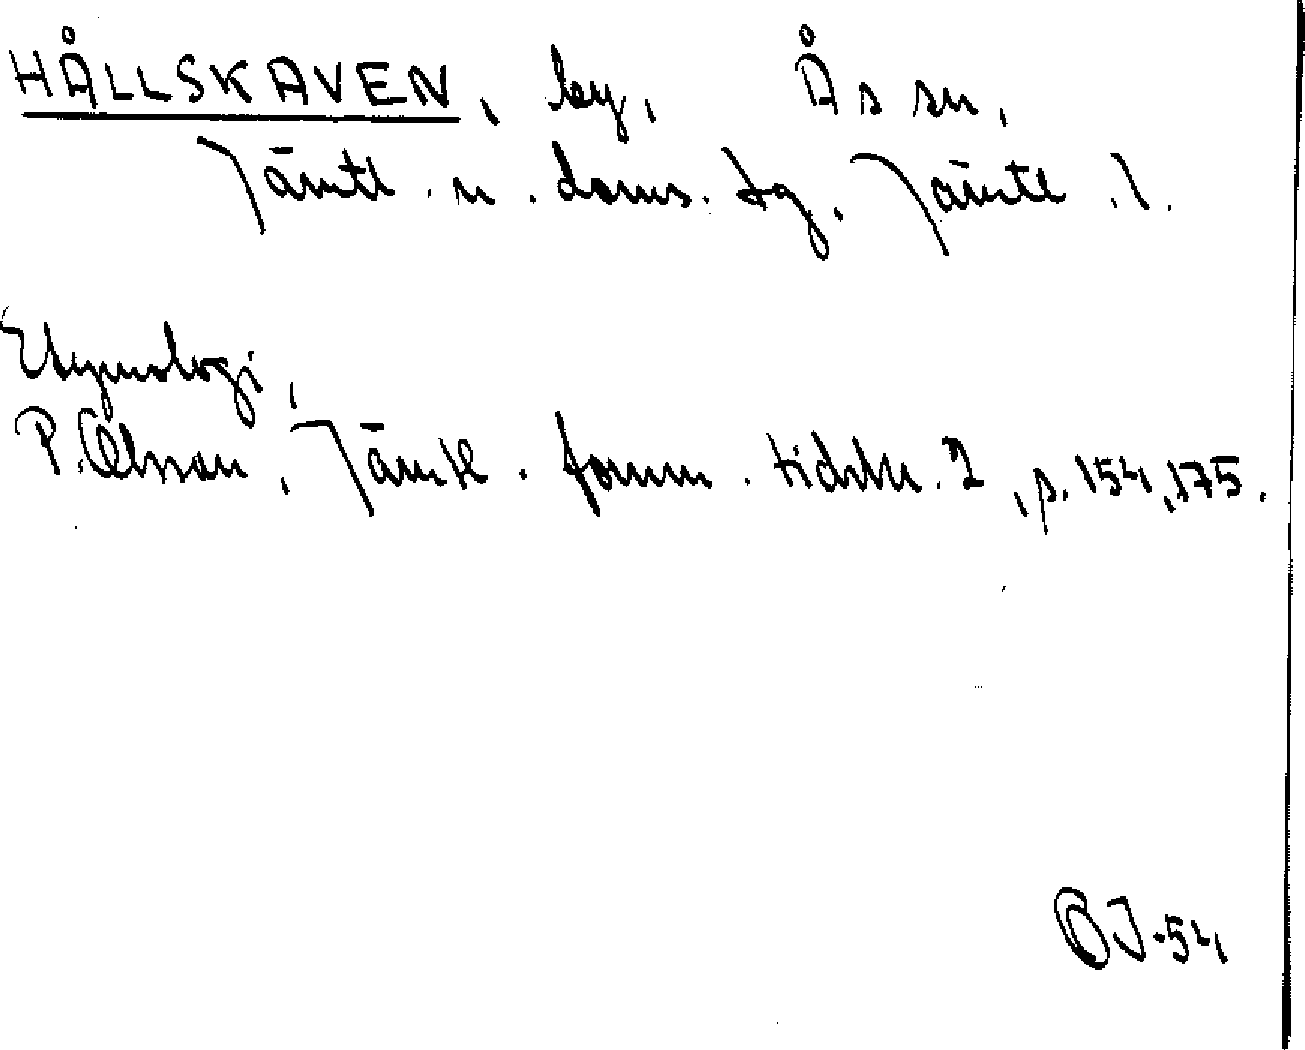 HÅLLSKAVEN, by, Ås sn,
Jämtl. n. doms. tg, Jämtl. l.
Etymologi,
P. Olsson, Jämtl. fornm. tidskr. 2, s. 154, 175.
OJ-54